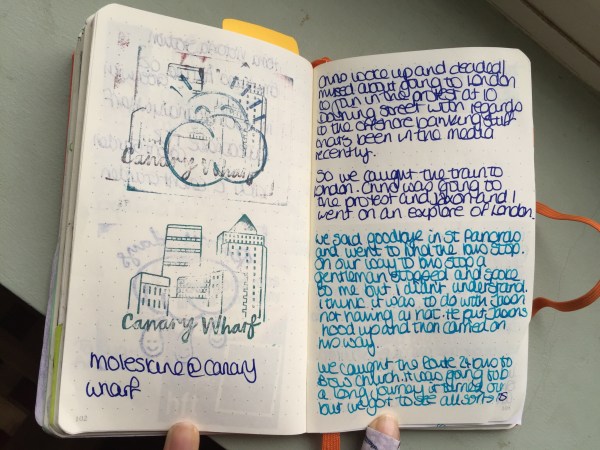 Canary Wharf
Canary Wharf
moleskine @ canary
wharf
woke up and decided
about going to London
to join in the protest at 10
Downing street with regards
to the offshore banking stuff
that's been in the media
recently.
So we caught the train to
London. Chris was going to
the protest and Jason and I
went on an explore of London.
We said goodbye in St Pancras
and went to find the bus stop.
On our way to bus stop a
gentleman stopped and spoke
to me but I didn't understand.
I think it was to do with Jason
not having a hat. He put Jason's
hood up and then carried on
his way.
We caught the Route bus to
Bow Church. It was going to be
a long journey it turned out
but we got to see all sorts